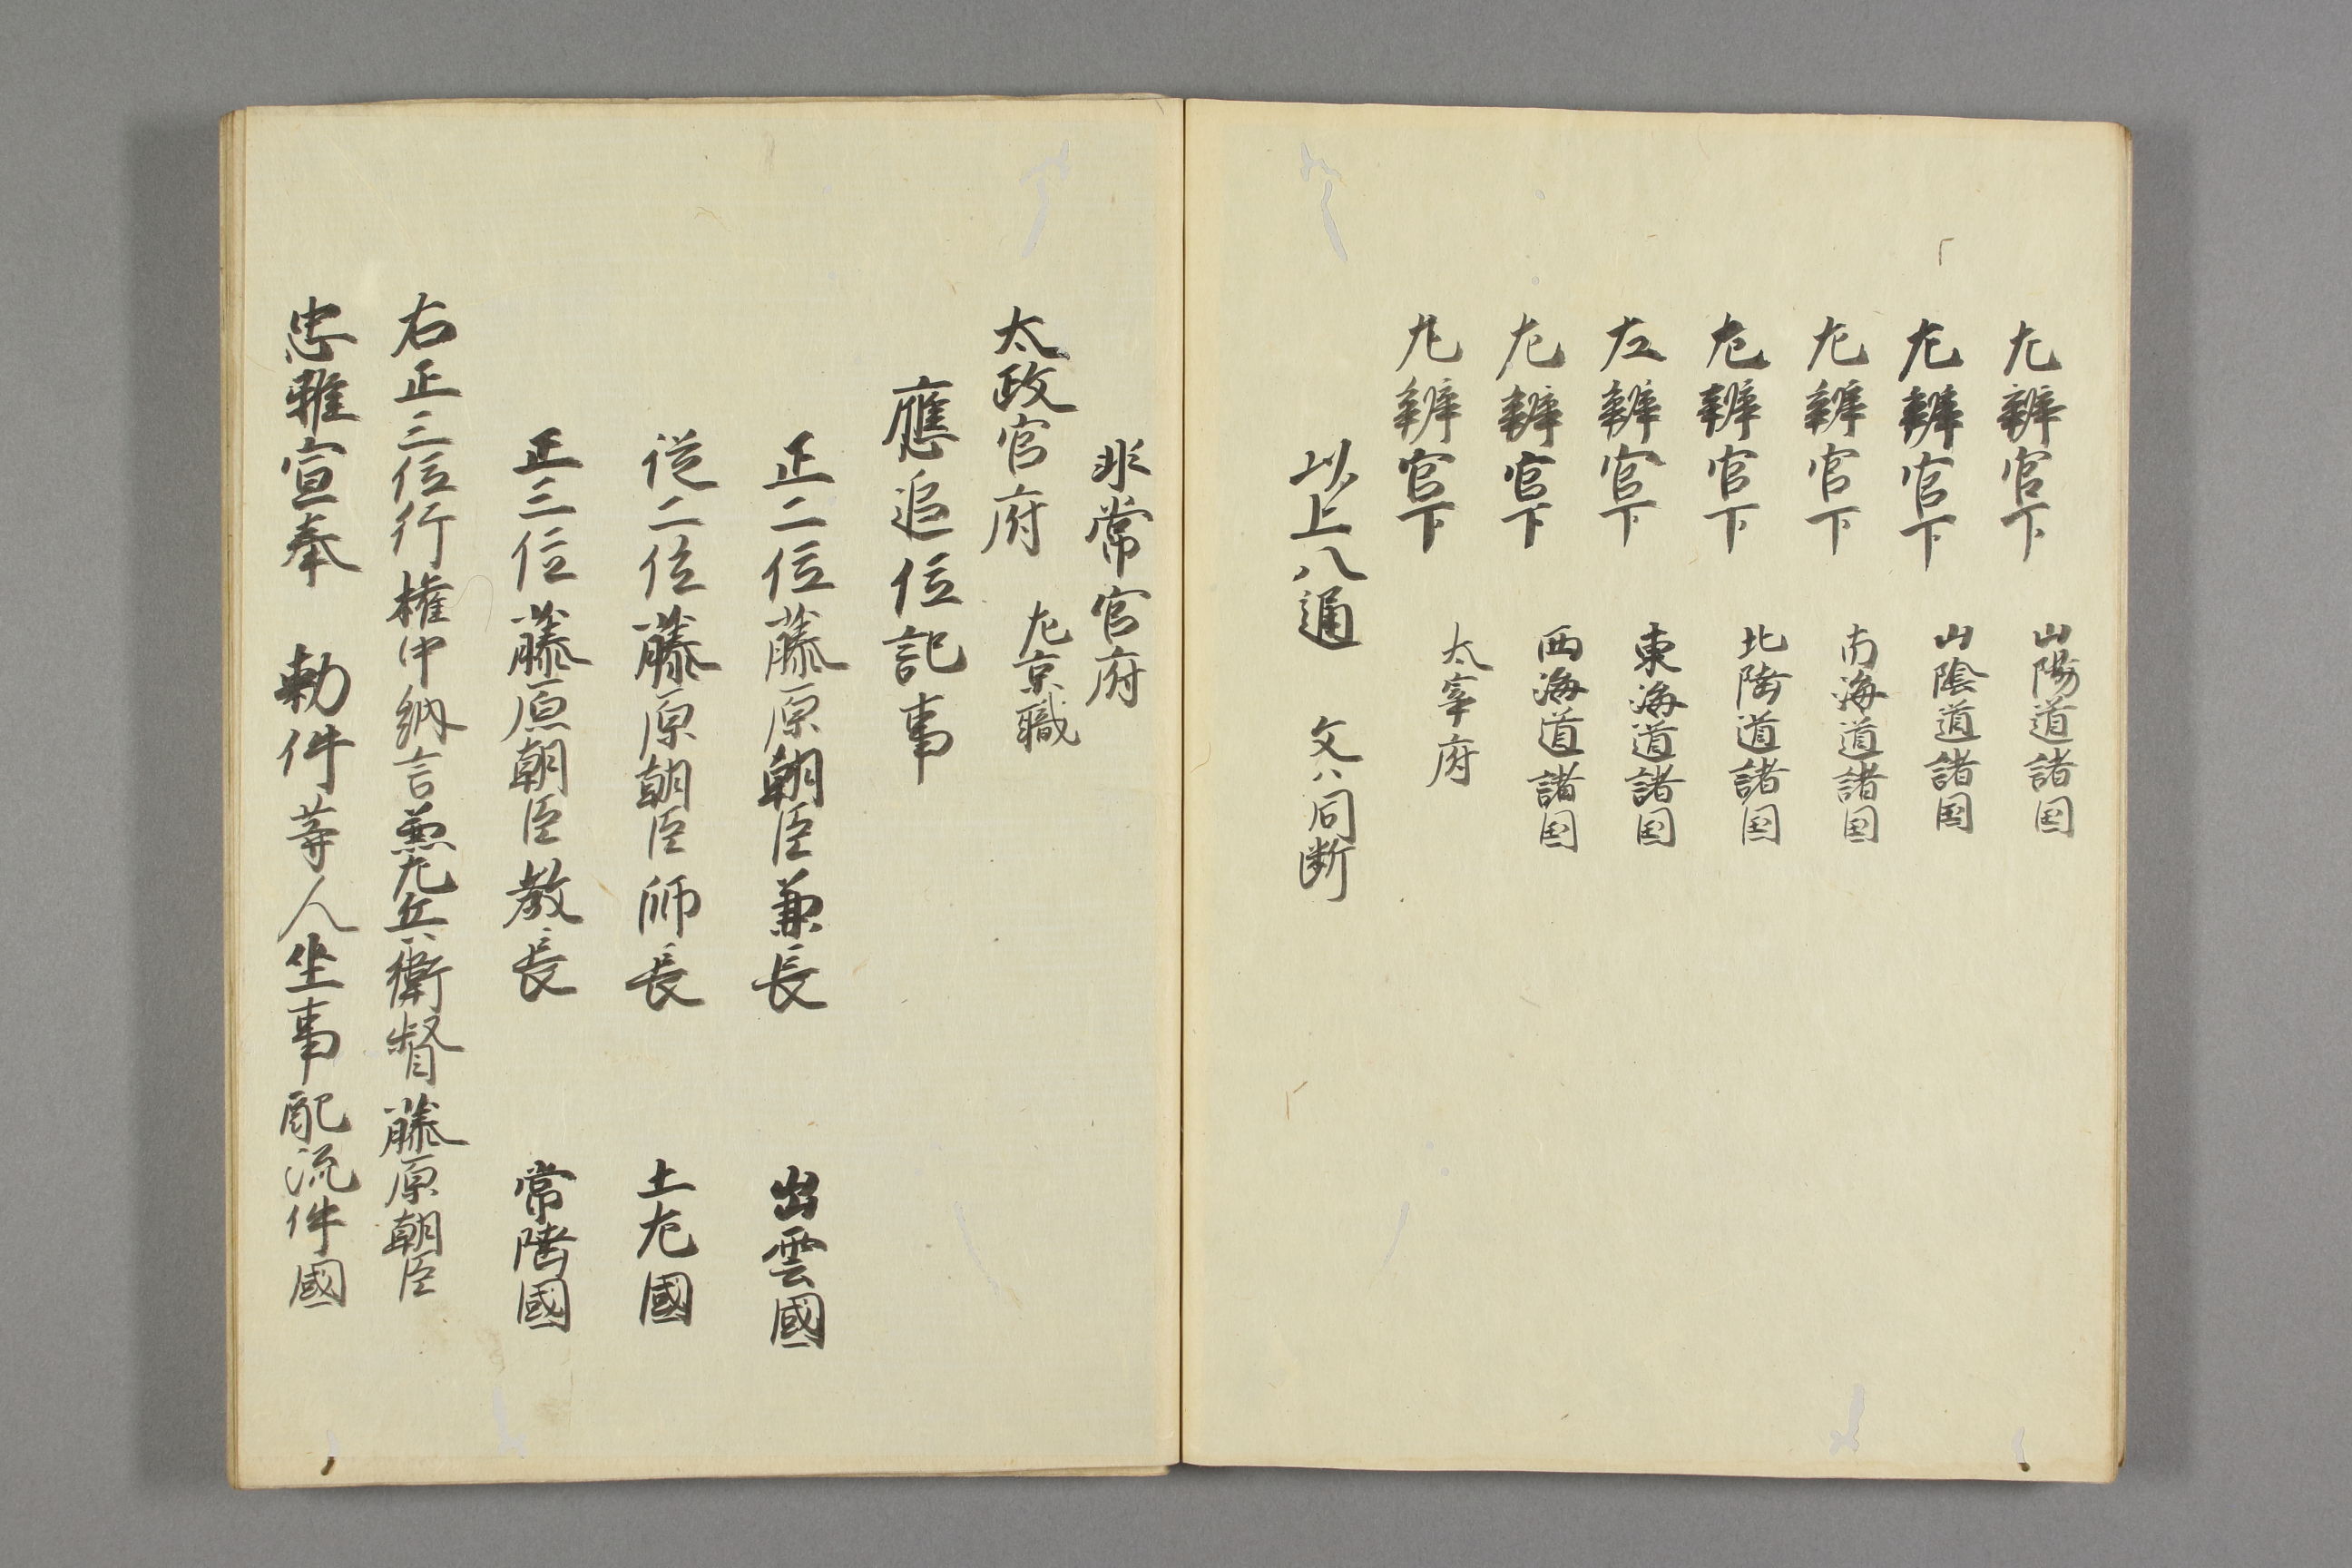 左辨官下　山陽道諸国
左辨官下　山陰道諸国
左辨官下　南海道諸国
左辨官下　北陸道諸国
左辨官下　東海道諸国
左辨官下　西海道諸国
左辨官下　太宰府
以上八通　文ハ同断
非常官府
太政官府　左京職
應追位記事
正二位藤原朝臣兼長　出雲國
従二位藤原朝臣師長　土左國
正三位藤原朝臣教長　常陸國
右正三位行権中納言兼左兵衛督藤原朝臣
忠雅宣奉　勅件等人坐事配流件國